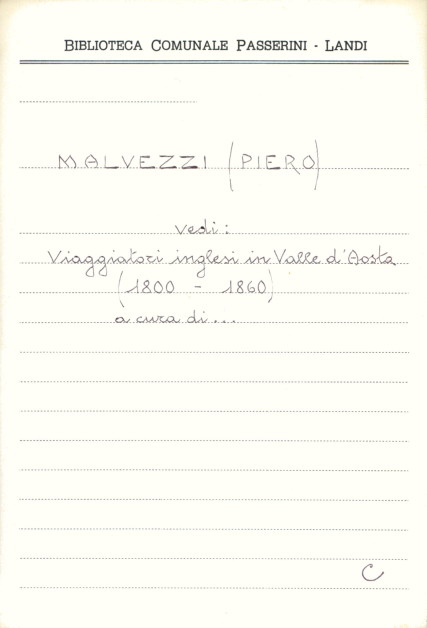 BIBLIOTECA COMUNALE PASSERINI - LANDI
MALVEZZI (PIERO)
vedi:
Viaggiatori inglesi in Valle d'Aosta
(1800 - 1860)
a cura di...
C